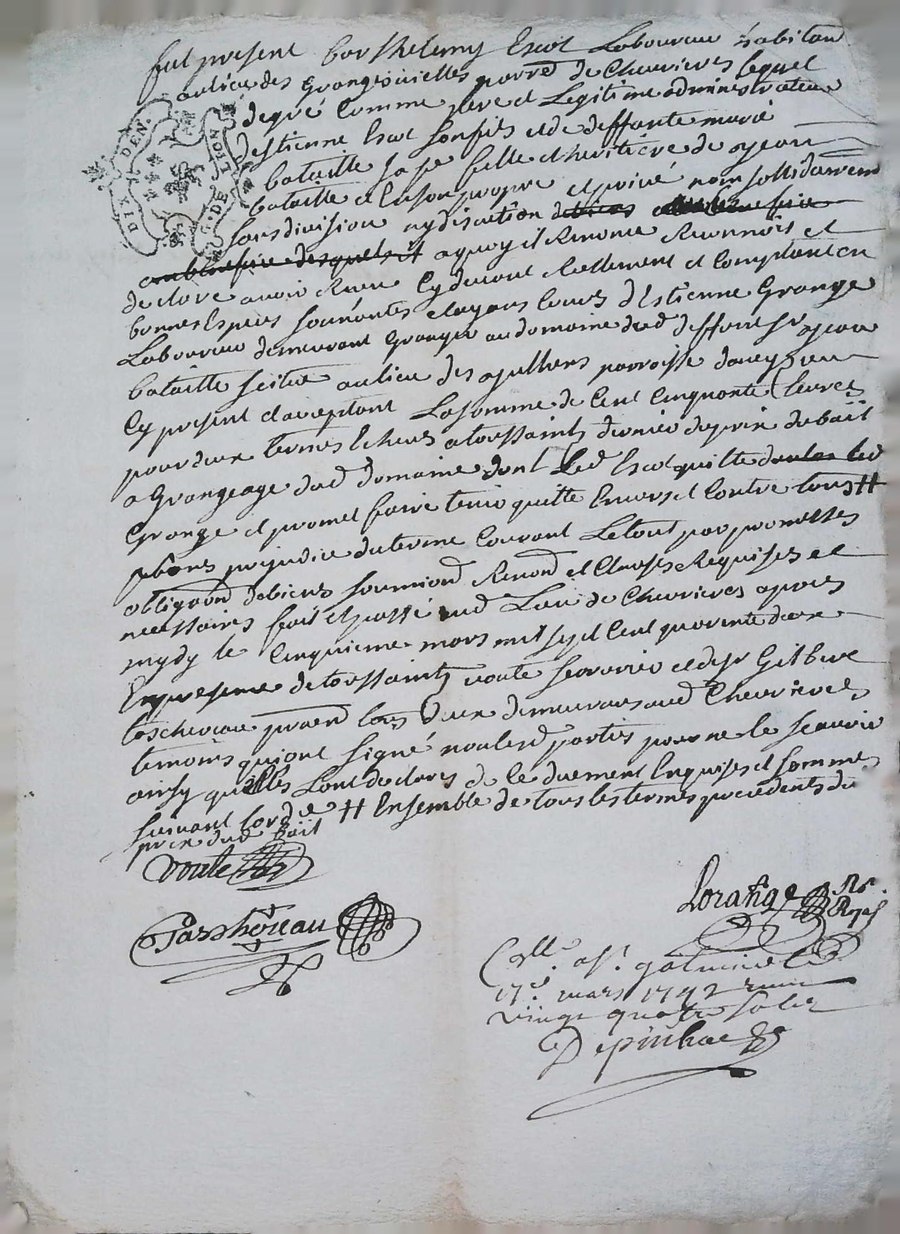 fut present Barthelemy Escot Laboureur habitan
au lieu des Granges vielles parrd de Chevrieres lequel
de gré comme pere et Legitime administrateur
destienne Escot son fils et de deffante marie
DIX DEN.
G. DE LION
bataille sa fe fille et heritiere de sr jean
bataille et en son propre et privé nom sollidairem
sans division ny discution
a quoy il Renonce Reconnois et
declare avoir Receu cy devant Reellement et Comptant en
bonnes Especes sonnantes et ayans Cours d'Estienne Grange
Laboureur demeurant Granger au domaine dud deffunt sr jean
bataille scitué au lieu des parroisse
Cy present et aceptant La somme de Cent Cinquante Livres
pour deux termes Echeus a toussaints dernier du prix du bail
a Grangeage dud domaine dont Led Escot quitte led
Grange et promet faire tenir quitte Envers et Contre tous #
sans prejudice du terme Courant Le tout par promesses
obligaond de biens soumiond Renond et Clauses Requises et
necessaires fait et passé aud Lieu de Chevrieres apres
mydy le Cinquieme mars mil sept Cent quarante deux
En presence de toussaints voute serrurier et de sr Gilbert
praend tous deux demeurans aud Chevrieres
temoins qui ont signé non lesd parties pour ne le scavoir
ainsy quelles l'ont declaré de ce duement Enquises et sommées
suivant lord ce # Ensemble de tous les termes precedents du
prix dud bail
voute
Lorange Nre
Royal
Coll. a St. galmier le
17e. mars 1742 Receu
vingt quatre solz
Depinhac